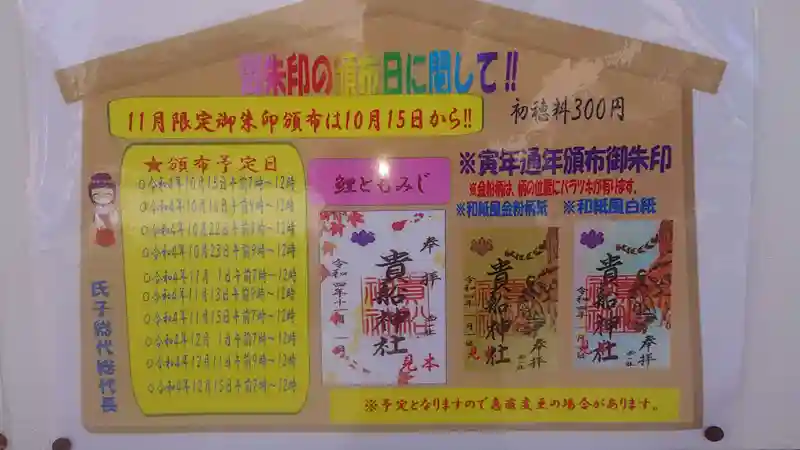 御朱印の頒布日に関して!!
11月限定御朱印頒布は10月15日から!!
初穂料300円
★頒布予定日
○令和4年10月15日午前7時～12時
○令和4年10月16日午前9時～12時
○令和4年10月22日午前9時～12時
○令和4年10月23日午前9時～12時
○令和4年11月 1日午前7時～12時
○令和4年11月13日午前9時～12時
○令和4年11月15日午前7時～12時
○令和4年12月 1日午前7時～12時
○令和4年12月11日午前9時～12時
○令和4年12月15日午前7時～12時
氏子総代総代長
鯉ともみじ
奉拝
貴船神社
令和四年十一月一日
見本
※寅年通年頒布御朱印
※金粉柄は、柄の位置にバラツキが有ります。
※和紙風金粉柄紙 ※和紙風白紙
貴船神社
奉拝
貴船神社
奉拝
※予定となりますので急遽変更の場合があります。